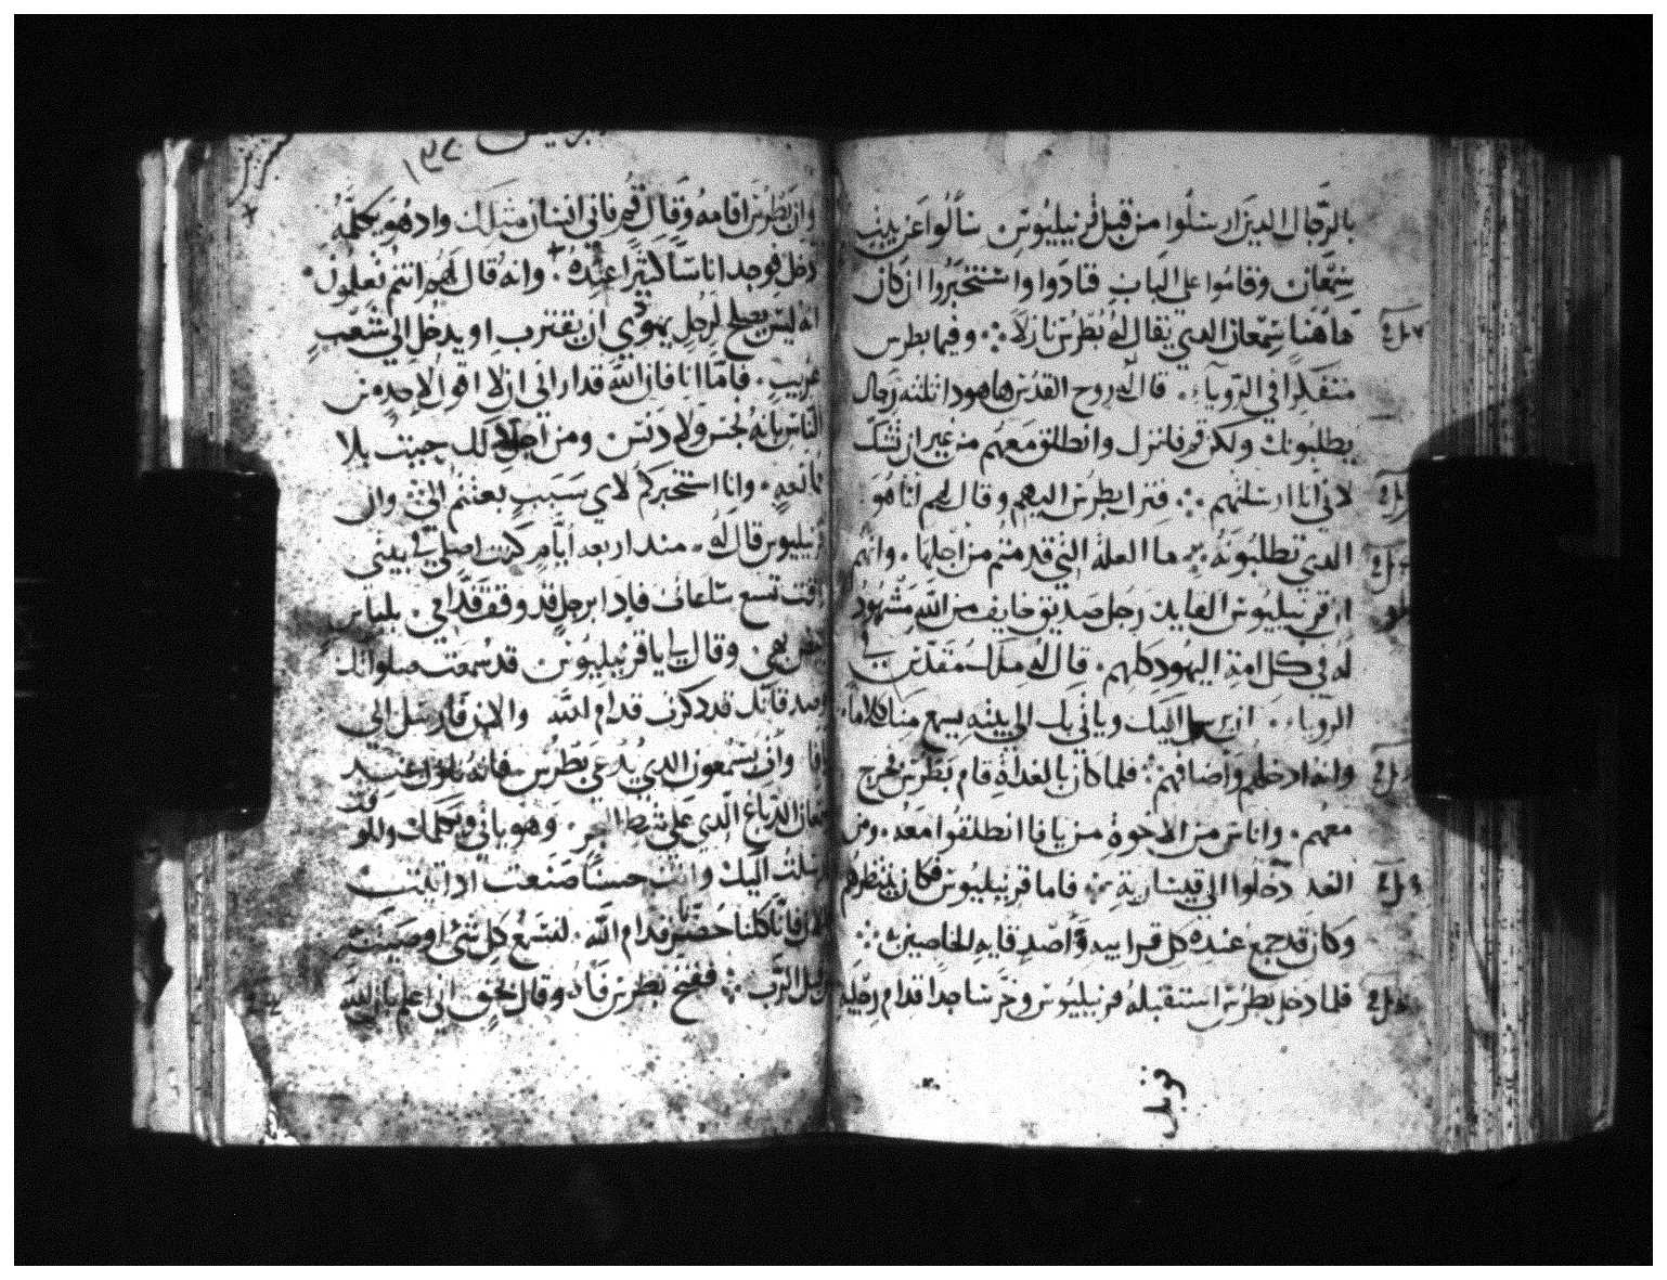 بالرّجال الدين ارسلوا من قبل قرنيليوس سألوا عن بيت
سمعان وقاموا على الباب فنادوا واستخبروا ان كان
هاهنا سمعان الدي يقال له بطرس نازلاً ∴ وفيما بطرس
متفكرا في الروياء . قال له روح القدس هاهودا ثلثه رجال
يطلبونك ولكن قم فانزل وانطلق معهم من غير ان تشك
لاني انا ارسلتهم ∴ فنزل بطرس اليهم وقال لهم انا هو
الدي تطلبونه ∴ ما العله التي قدمتم من اجلها . وانهم
ان قرنيليوس القايد رجل صديق خايف من الله مشهود
له في كل امة اليهود كلهم . قال له ملاك مقدس في
الروياء . ان يرسل اليك وياتي بك الى بيته يسمع منك كلاما
وانه ادخلهم واضافهم ∴ فلما كان بالغداة قام بطرس فخرج
معهم . واناس من الاخوة من يافا انطلقوا معه . ومن
الغد دخلوا الى قيسارية ∴ فاما قرنيليوس فكان ينتظرهم
وكان قد جمع عنده كل قرابيه واصدقايه الخاصين ∴
فلما دخل بطرس استقبله قرنيليوس وخر ساجدا قدام رجليه
قزبل
١٣٧
وان بطرس اقامه وقال قم فاني انسان مثلك وادهو يكلمه
دخل فوجد اناسا كثيرا عنده . وانه قال لهم انتم تعلمون
انه ليس يصلح لرجل يهودي ان يقترب او يدخل الى شعب
غريب . فاما انا فان الله قد اراني ان لا اقول لاحد من
الناس بانه نجس ولا دنس . ومن اجل دلك جيت بلا
مانعه . وانا استخبركم لاي سبب بعثتم الي ∴ وان
قرنيليوس قال له . مند اربعه ايام كنت اصلي في بيتي
وقت تسع ساعات فادا برجل قد وقف قدامي . بلباس
وقال لي يا قرنيليوس قد سمعت صلواتك
وصدقاتك قد دكرت قدام الله والان فارسل الى
يافا وات بسمعون الدي يدعى بطرس فانه نازل عند
سمعان الدباغ الدي على شط البحر . وهو ياتي ويكلمك وللوقت
ارسلت اليك وانت حسنا صنعت اد اتيت
الان فانا كلنا حضر قدام الله . لنسمع كل شي اوصيت
من قبل الرب ∴ ففتح بطرس فاه وقال بحق اني اعلم بان الله